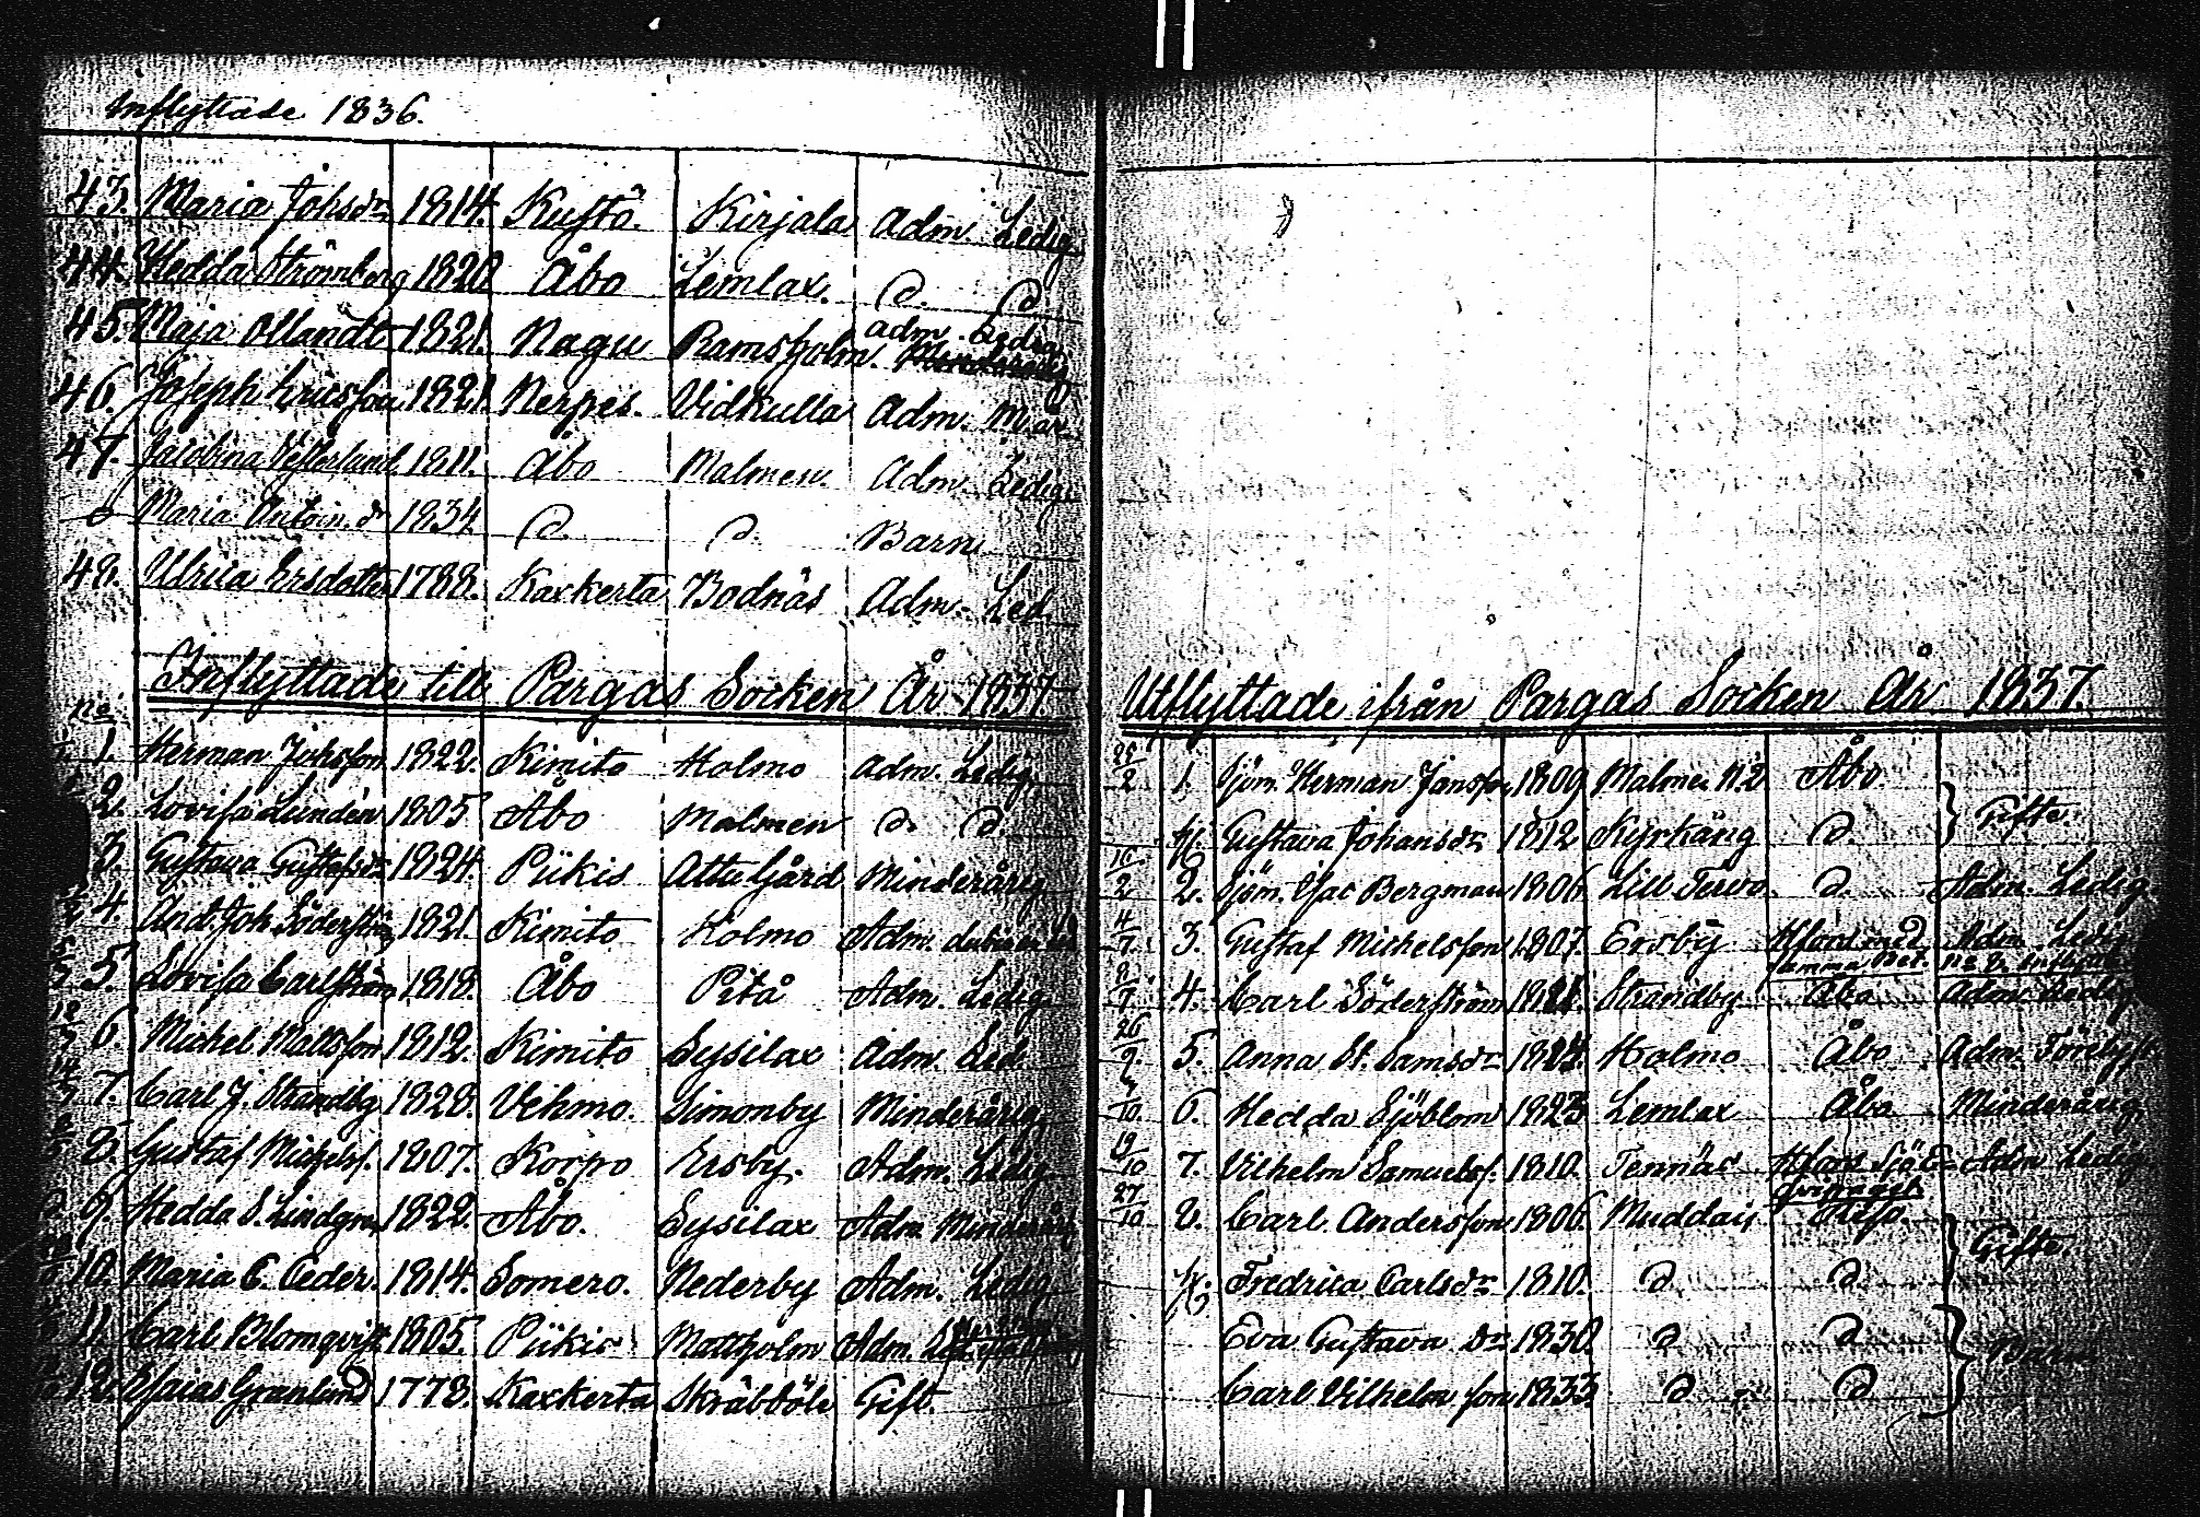 Inflyttade 1836.
43. Maria Johsdr 1814. Kustö. Kirjala Adm. Ledig
44. Hedda Strömberg 1820 Åbo Lemlax. d. d
45. Maja Ollandt 1821. Nagu Ramsholm. adm. Ledig
46. Joseph Ericsson 1821 Nerpes. Vidkulla Adm. M.år
47. Jacobina Vesterlund 1811. Åbo Malmen Adm. Ledig
Maria Antoin. dr 1834 d. d. Barn
48. Ulrica Ersdotter 1788. Kaxkerta Bodnäs Adm. Led.
Inflyttade till Pargas Socken År 1837
No
1. Herman Johsson 1822. Kimito Holmo Adm. Ledig
2. Lovisa Lundén 1805 Åbo Malmen d. d.
3. Gustava Gustafsdr 1824. Piikis Attu Gård Minderårig
4. And. Joh. Söderström 1821. Kimito Holmo Adm.
5. Lovisa Carlström 1818. Åbo Pitå Adm. Ledig
6. Michel Mattsson 1812. Kimito Sysilax Adm. Led.
7. Carl J. Strandbg 1828. Vehmo. Simonby Minderårig
8. Gustaf Michelss. 1807. Korpo Ersby. Adm. Ledig
9. Hedda S. Lindgren 1822. Åbo. Sysilax Adm. Minderårig
10. Maria C. Ceder. 1814. Somero. Nederby Adm. Ledig
11. Carl Blomqvist 1805. Piikis Mattholm Adm.
12. Esaias Granlund 1778. Kaxkerta Skräbböle Gift.
Utflyttade ifrån Pargas Socken År 1837.
1. Sjöm. Herman Jansson 1809 Malmen N:2 Åbo.
H. Gustava Johansdr 1812 Kyrkäng d. Gifte.
16/2 2. Sjöm. Isac Bergman 1806. Lill Tervo d. Adm. Ledig
4/7 3. Gustaf Michelsson 1807. Ersby Adm. Ledig
samma Bet.
4. Carl Söderström 1821. Strandby Åbo Adm. Ledig
26/9. 5. Anna St. Samsdr Holmo Åbo Adm.
/10. 6. Hedda Sjöblom 1823 Lemlax Åbo Minderårig
19/10 7. Vilhelm Samuelss. 1810. Tennäs Adm. Ledig
27/10 8. Carl Andersson 1806. Muddais
H. Fredrica Carlsdr 1810. d. d. Gifte.
Eva Gustava Dr 1830. d d
Carl Vilhelm son 1833. d d Barn